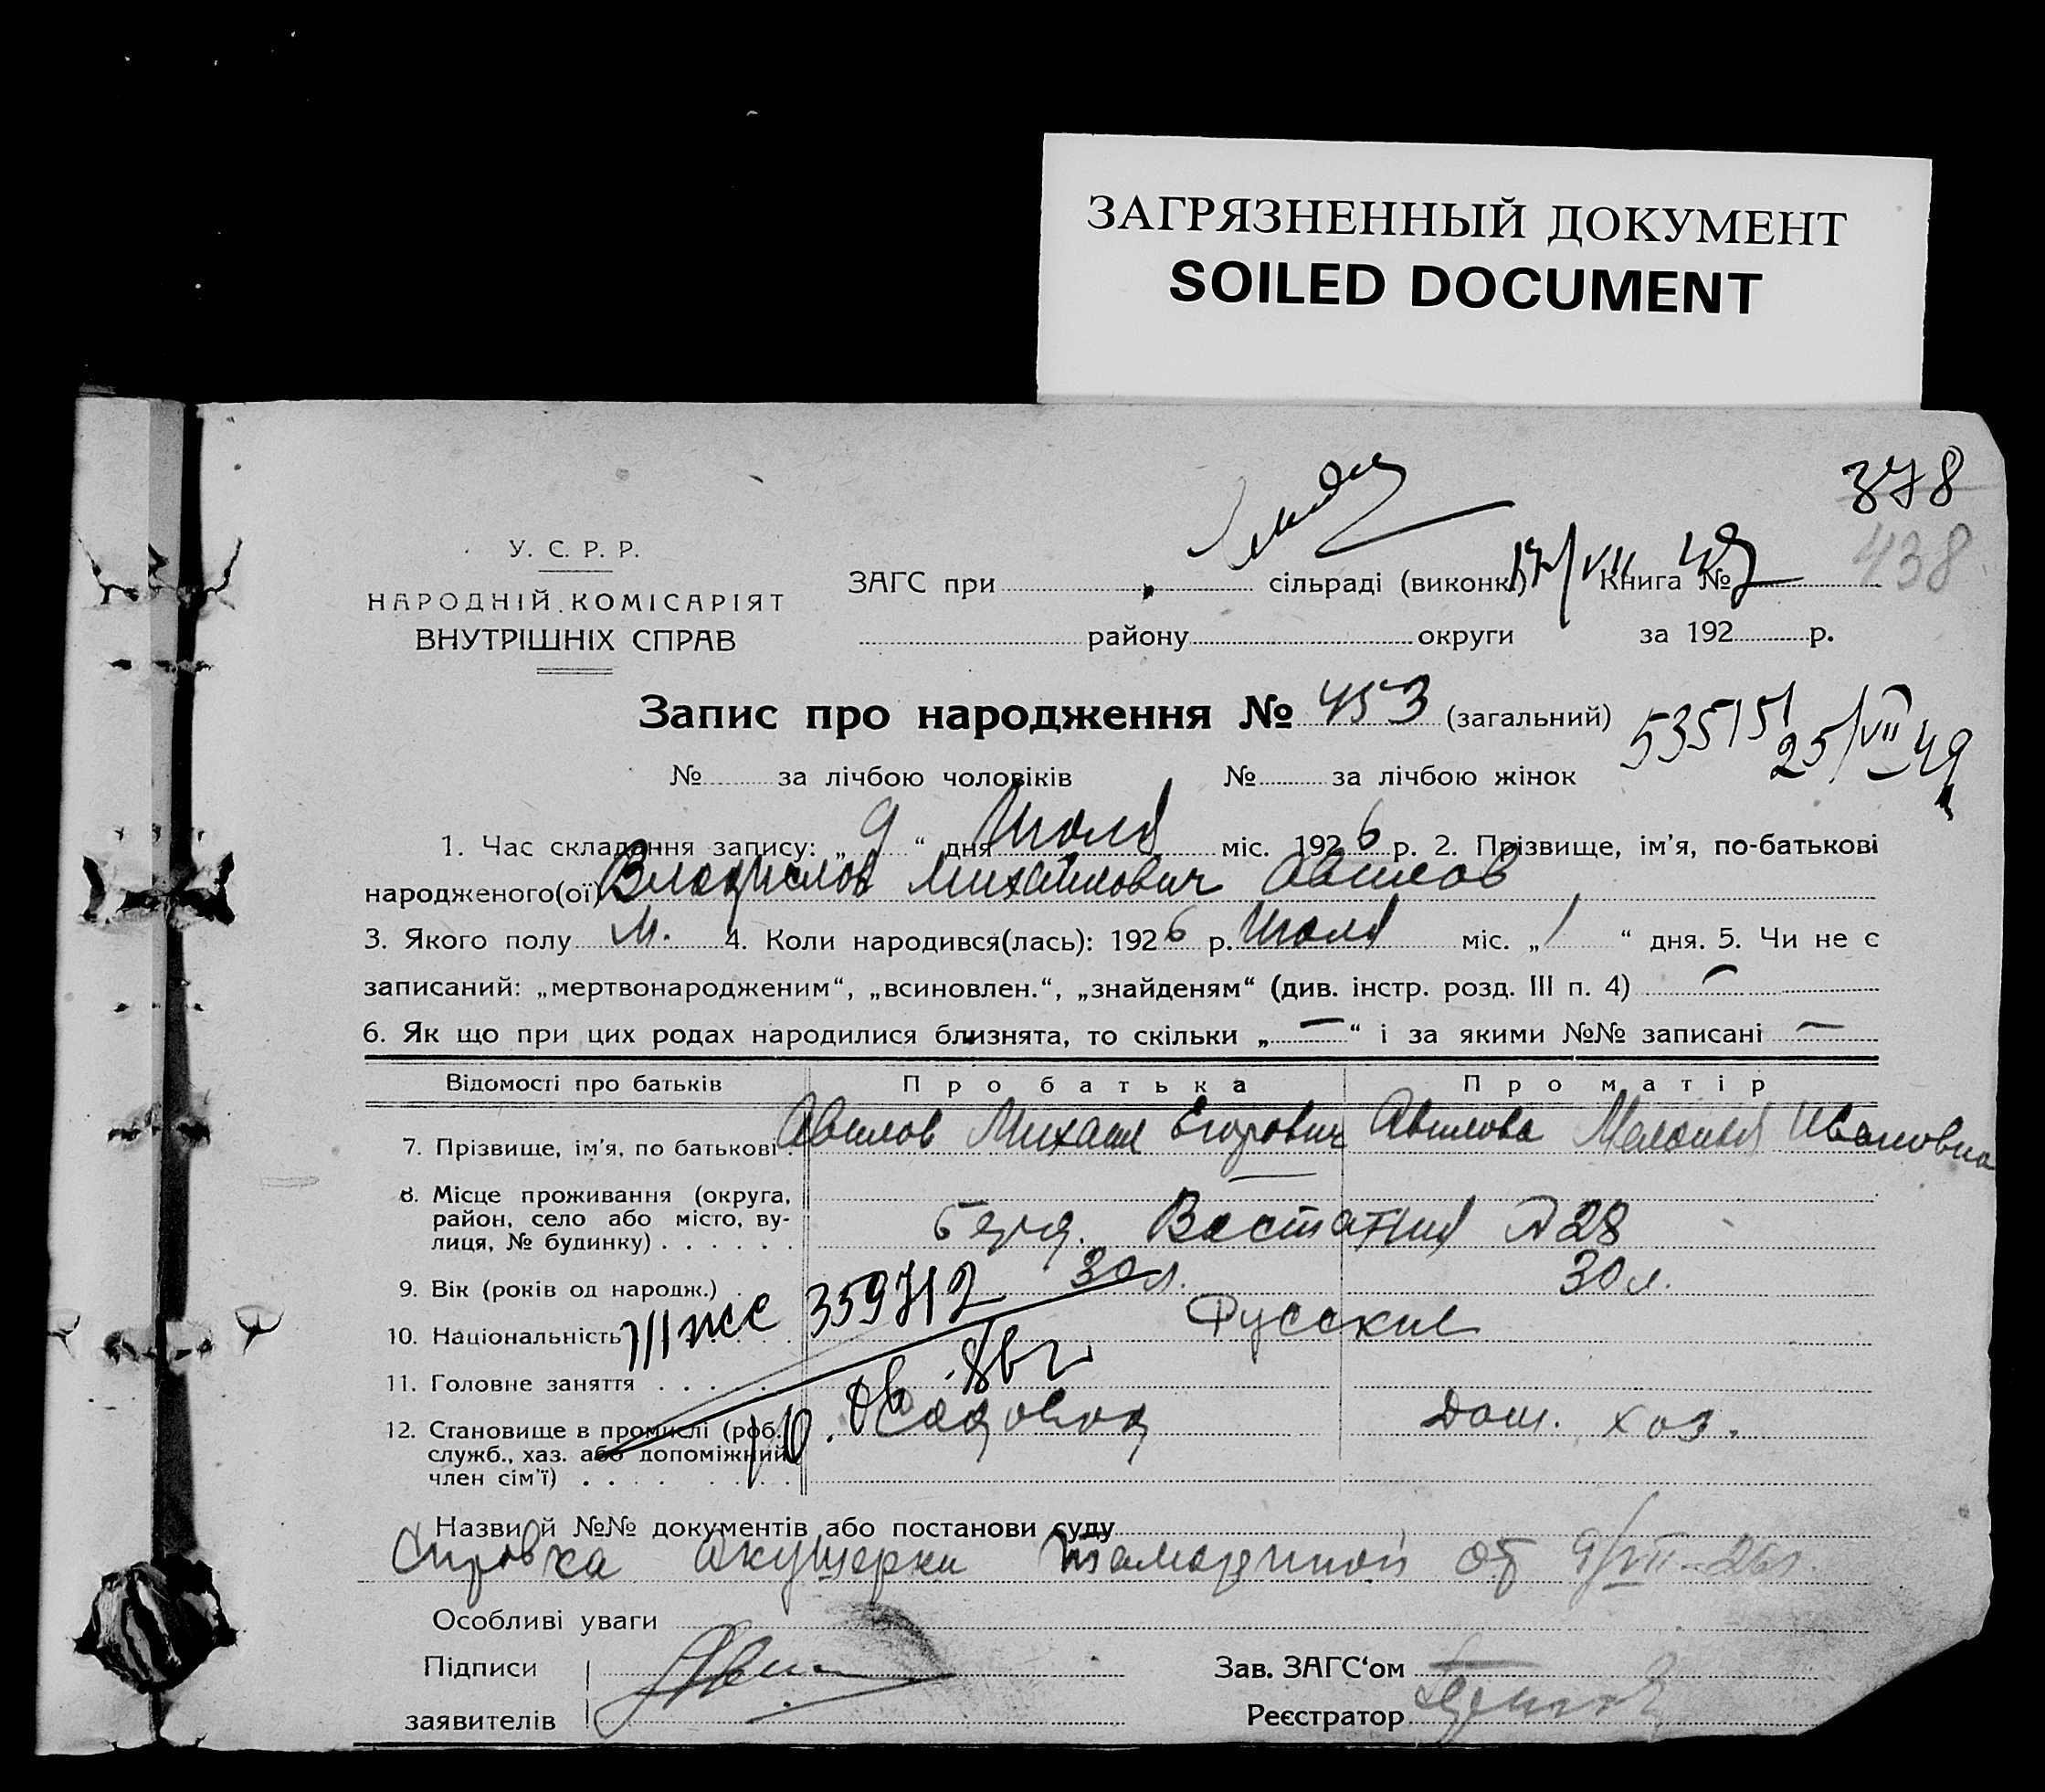 ЗАГРЯЗНЕННЫЙ ДОКУМЕНТ
SOILED DOCUMENT
378
438
У. С. Р. Р.
НАРОДНІЙ КОМІСАРІЯТ
ВНУТРІШНІХ СПРАВ
ЗАГС при сільраді (виконк.) 17/VII 49 Книга №
району округи за 192 р.
Запис про народження № 453 (загальний)
535151 25/VII 49
№ за лічбою чоловіків № за лічбою жінок
1. Час складання запису: „ 9 “ дня Июля міс. 1926 р. 2. Прізвище, ім'я, по-батькові
народженого(ої) Владислав Михайлович Авилов
3. Якого полу М. 4. Коли народився(лась): 1926 р. Июля міс. „ 1 “ дня. 5. Чи не є
записаний: „мертвонародженим“, „всиновлен.“, „знайденям“ (див. інстр. розд. III п. 4) —
6. Як що при цих родах народилися близнята, то скільки „ — “ і за якими №№ записані —
Відомості про батьків Про батька Про матір
7. Прізвище, ім'я, по батькові . Авилов Михаил Егорович Авилова Меланья Ивановна
8. Місце проживання (округа,
район, село або місто, ву-
лиця, № будинку) . . . . . . Восстания № 28
9. Вік (років од народж.) . 30 л. 30 л.
10. Національність Русские
359712
11. Головне заняття . . . . .
12. Становище в промислі (роб.,
служб., хаз. або допоміжний
член сім'ї) . . . . . . Садовод Дом. хоз.
Назви й №№ документів або постанови суду
Справка акушерки от 9/VII-26 г.
Особливі уваги
Підписи
заявителів
Зав. ЗАГС‘ом
Реєстратор